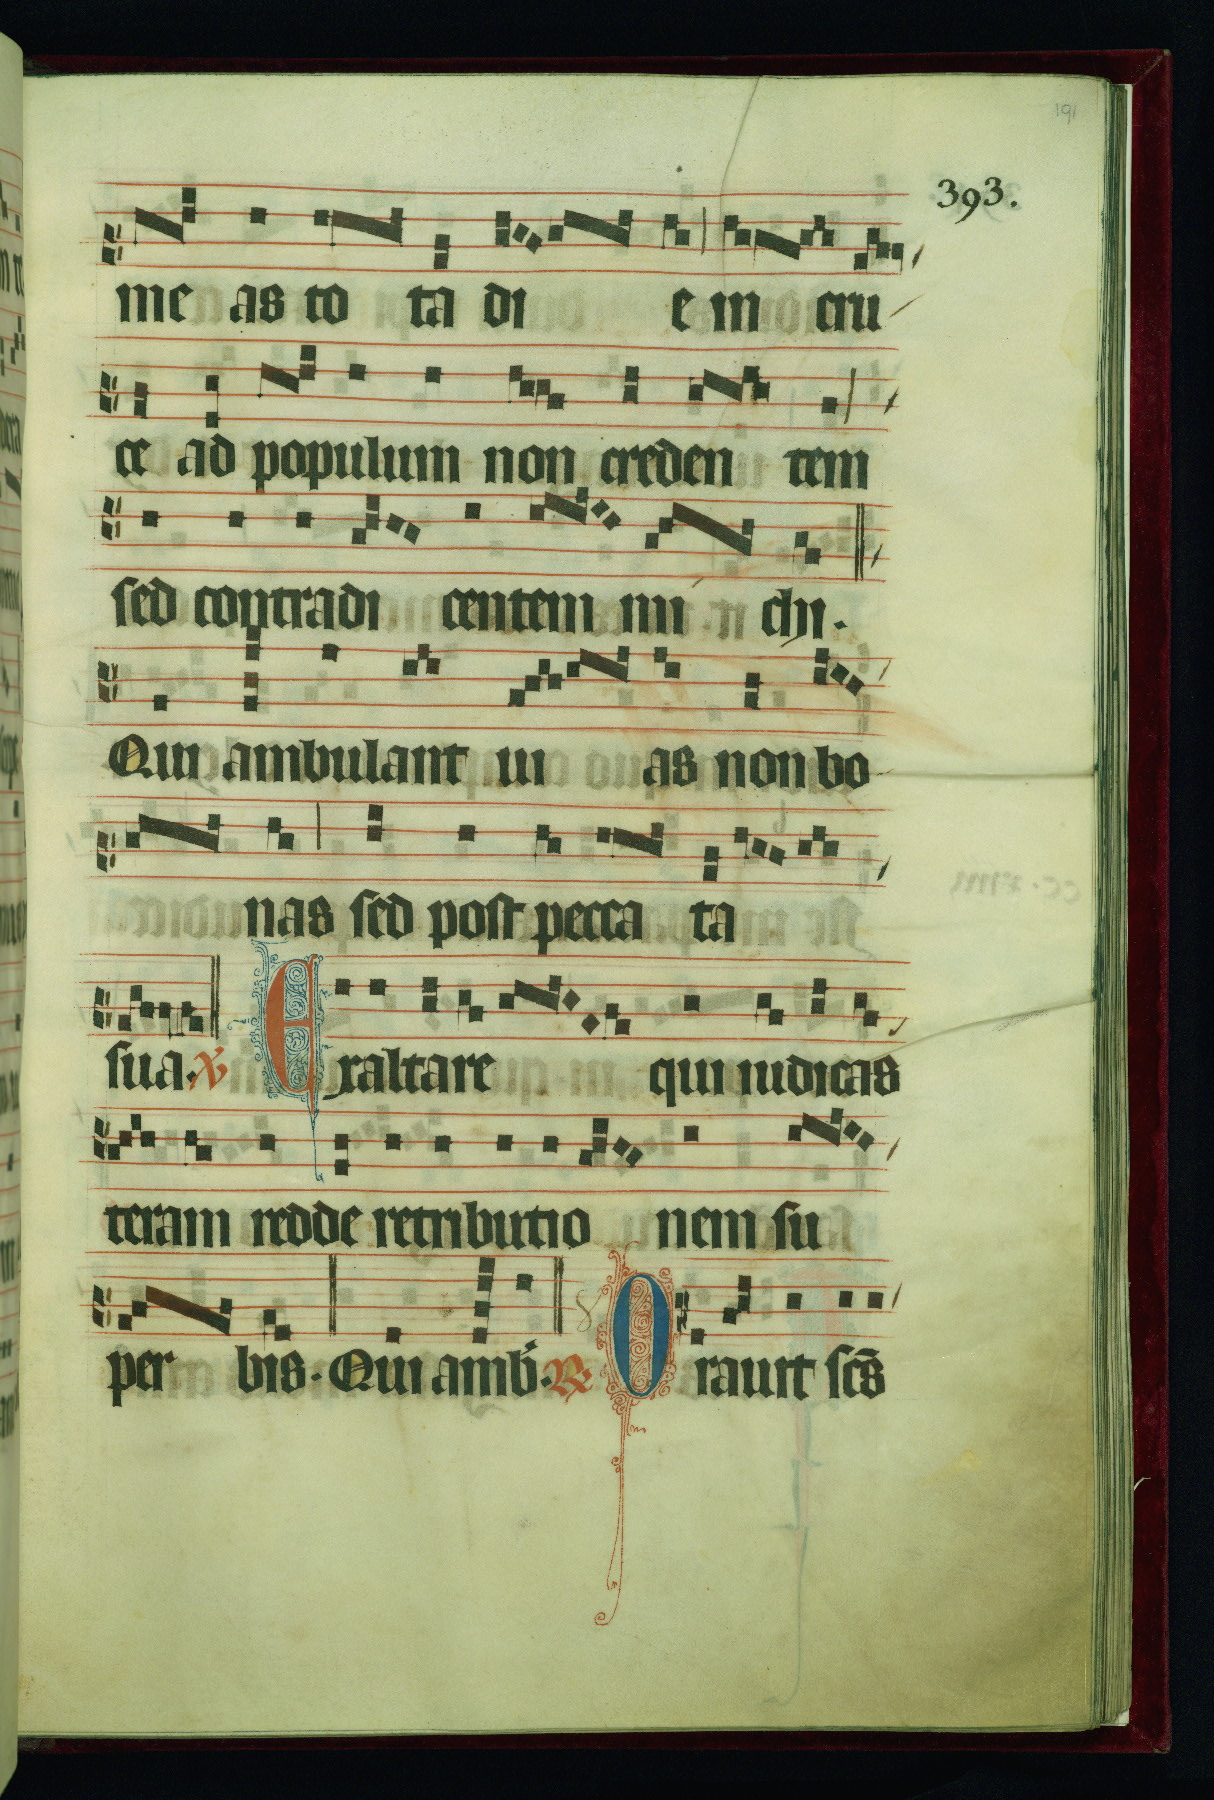 191
393.
me as to ta di e in cru
ce ad populum non creden tem
sed contradi centem mi chi.
Qui ambulant ui as non bo
nas sed post pecca ta
sua. V Exaltare qui iudicas
teram redde retributio nem su
per bis. Qui amb. R Orauit scs